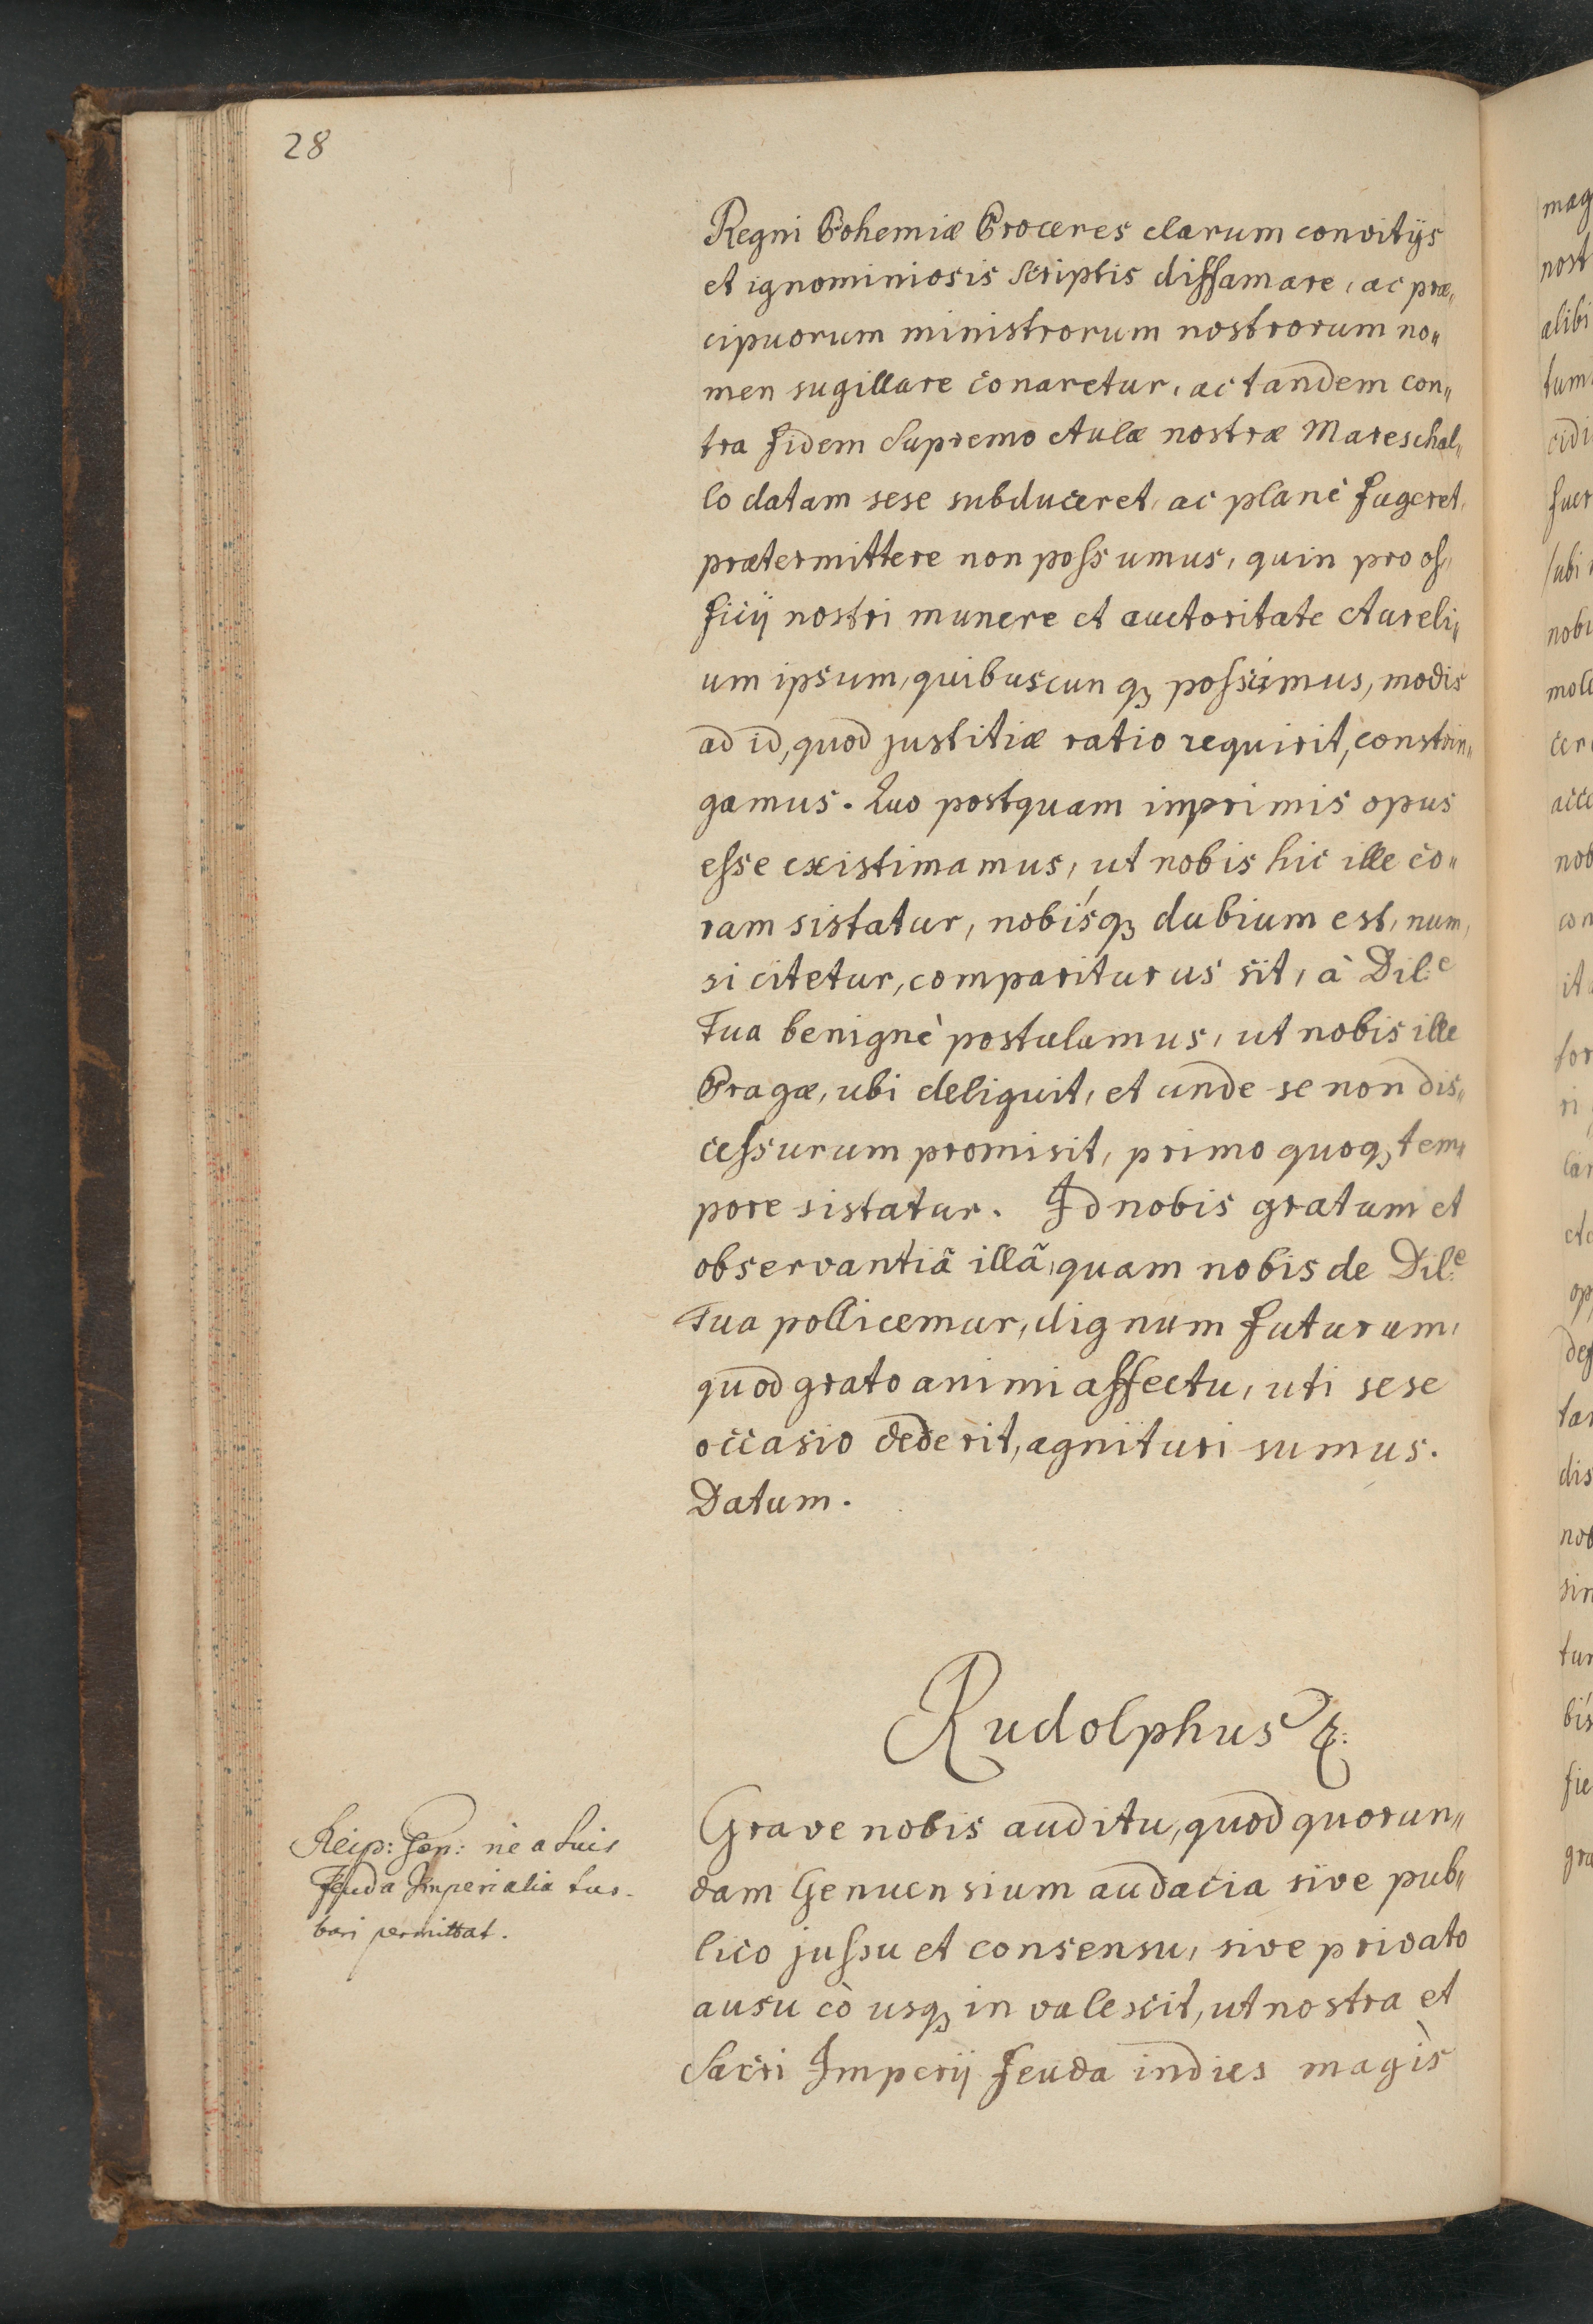 28
Regni Bohemiæ Proceres clarum convitijs
et ignominiosis scriptis diffamare, ac præ„
cipuorum ministrorum nostrorum no„
men sugillare conaretur, ac tandem con„
tra fidem Supremo Aulæ nostræ Mareschal„
lo datam sese subduceret, ac planè fugeret,
prætermittere non possumus, quin pro of„
ficij nostri munere et auctoritate Aureli„
um ipsum, quibuscunqȝ possimus, modis
ad id, quod justitiæ ratio requirit, constrin„
gamus. Quo postquam imprimis opus
esse existimamus, ut nobis hic ille co„
ram sistatur, nobísqȝ dubium est, num,
si citetur, compariturus sit, à Dil:e
Tua benignè postulamus, ut nobis ille
Pragæ, ubi deliquit, et unde se non dis„
cessurum promisit, primo quoqȝ tem„
pore sistatur. Id nobis gratum et
observantiã illã, quam nobis de Dil:e
Tua pollicemur, dignum futurum,
quod grato animi affectu, uti sese
occasio dederit, agnituri sumus.
Datum.
Rudolphus &:
Reip: Gen: ne a suis
feuda Imperialia tur-
bari permittat.
Grave nobis auditu, quod quorun„
dam Genuensium audacia sive pub„
lico jussu et consensu, sive privato
ausu eò usqȝ invalescit, ut nostra et
Sacri Imperij feuda indies magìs
mag
nost
alibi
tum
cidi
fuer
subi
nobi
mole
cer
acce
nob
con
it
for
ri
lar
op
deg
tar
dis
nob
sin
tur
bís
fie
gra